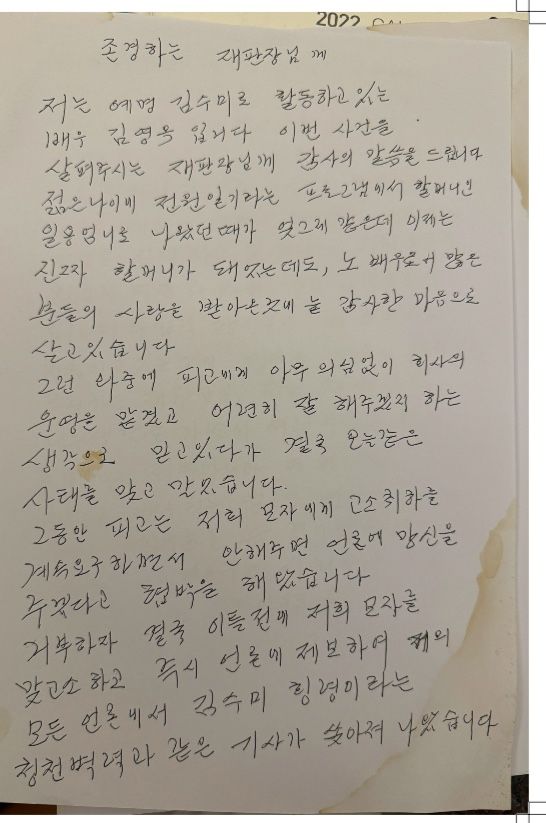 2022
존경하는 재판장님께
저는 예명 김수미로 활동하고 있는
배우 김영옥 입니다 이번 사건을
살펴주시는 재판장님께 감사의 말씀을 드립니다
젊은나이에 전원일기라는 프로그램에서 할머니인
일용엄니로 나왔던때가 엊그제 같은데 이제는
진짜 할머니가 돼있는데도, 노 배우로서 많은
분들의 사랑을 받아온것에 늘 감사한 마음으로
살고있습니다
그런 와중에 피고에게 아무 의심없이 회사의
운영을 맡겼고 어련히 잘 해주겠지 하는
생각으로 믿고있다가 결국 오늘같은
사태를 맞고 말았습니다.
그동안 피고는 저희 모자에게 고소취하를
계속요구하면서 안해주면 언론에 망신을
주겠다고 협박을 해 왔습니다
거부하자 결국 이틀전에 저희 모자를
맞고소 하고 즉시 언론에 제보하여
모든 언론에서 김수미 횡령이라는
청천벽력과 같은 기사가 쏟아져 나왔습니다